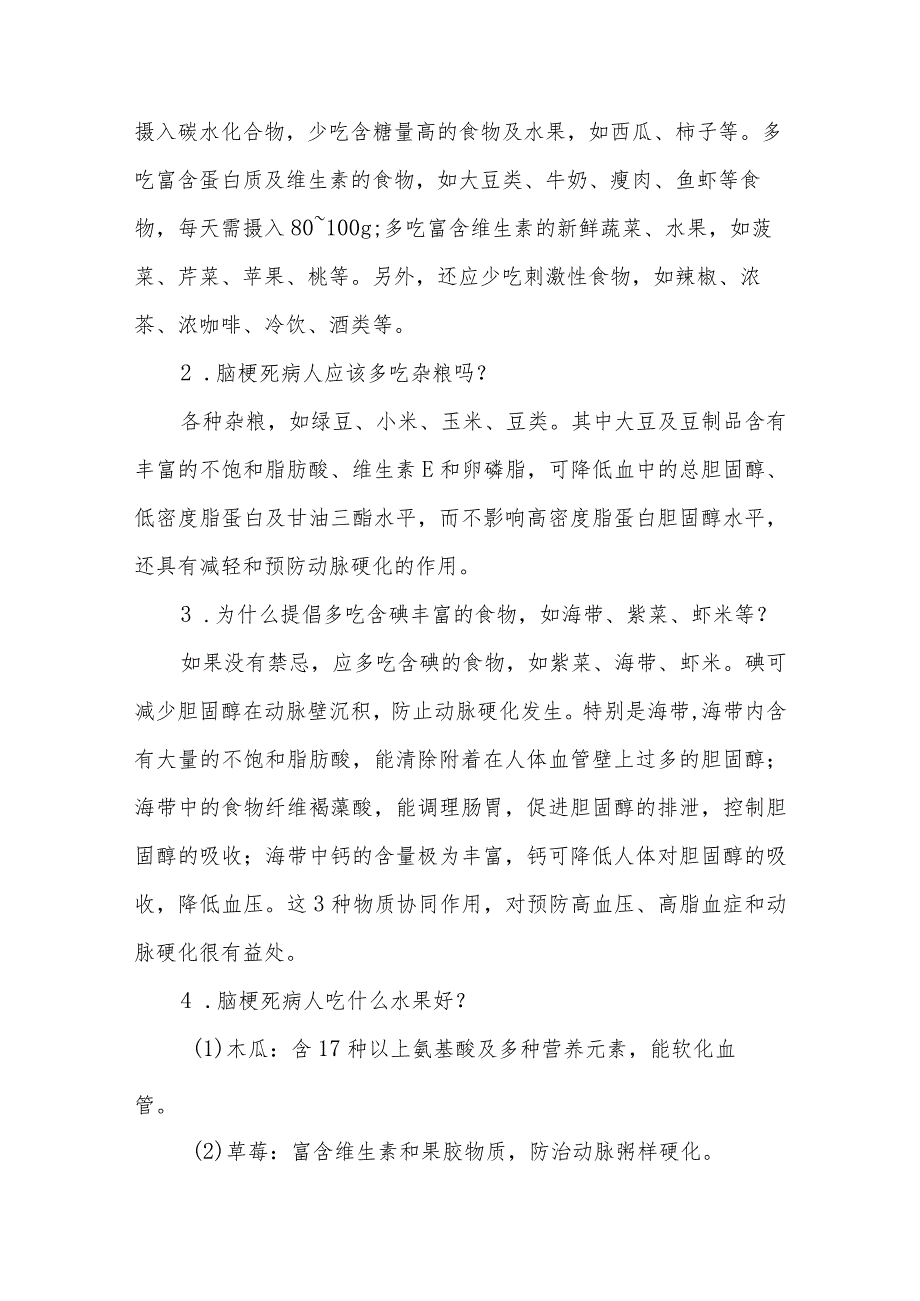 摄入碳水化合物，少吃含糖量高的食物及水果，如西瓜、柿子等。多
吃富含蛋白质及维生素的食物，如大豆类、牛奶、瘦肉、鱼虾等食
物，每天需摄入80~100g;多吃富含维生素的新鲜蔬菜、水果，如菠
菜、芹菜、苹果、桃等。另外，还应少吃刺激性食物，如辣椒、浓
茶、浓咖啡、冷饮、酒类等。
2 .脑梗死病人应该多吃杂粮吗？
各种杂粮，如绿豆、小米、玉米、豆类。其中大豆及豆制品含有
丰富的不饱和脂肪酸、维生素E和卵磷脂，可降低血中的总胆固醇、
低密度脂蛋白及甘油三酯水平，而不影响高密度脂蛋白胆固醇水平，
还具有减轻和预防动脉硬化的作用。
3 .为什么提倡多吃含碘丰富的食物，如海带、紫菜、虾米等？
如果没有禁忌，应多吃含碘的食物，如紫菜、海带、虾米。碘可
减少胆固醇在动脉壁沉积，防止动脉硬化发生。特别是海带,海带内含
有大量的不饱和脂肪酸，能清除附着在人体血管壁上过多的胆固醇；
海带中的食物纤维褐藻酸，能调理肠胃，促进胆固醇的排泄，控制胆
固醇的吸收；海带中钙的含量极为丰富，钙可降低人体对胆固醇的吸
收，降低血压。这3种物质协同作用，对预防高血压、高脂血症和动
脉硬化很有益处。
4 .脑梗死病人吃什么水果好？
(1)木瓜：含17种以上氨基酸及多种营养元素，能软化血
管。
(2)草莓：富含维生素和果胶物质，防治动脉粥样硬化。